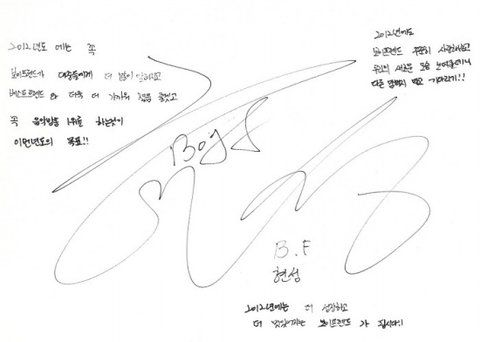 2012년도 에는 꼭
보이프렌드가 대중들에게 더 많이 알려지고
베스트프렌드 와 더욱 더 가까워 졌음 좋겠고
꼭 음악방송 1위를 하는것이
이번년도의 목표!!
2012년에도
보이프렌드 꾸준히 사랑해주시고
우리의 새로운 모습
B.F
현성
2012년에는 더 성장하고
더 멋있어지는 보이프렌드 가 됩시다!